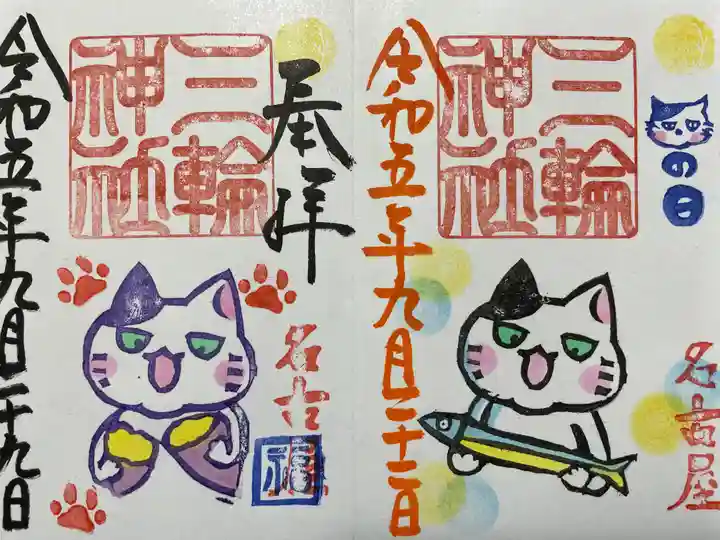 奉拝
三輪
神社
名古屋
福
令和五年九月二十九日
の日
三輪
神社
名古屋
令和五年九月二十二日